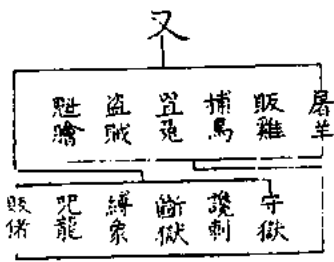 又
屠羊
販雞
捕鳥
罝兔
盜賊
魁膾
守獄
讒刺
斷獄
縛象
咒龍
販猪